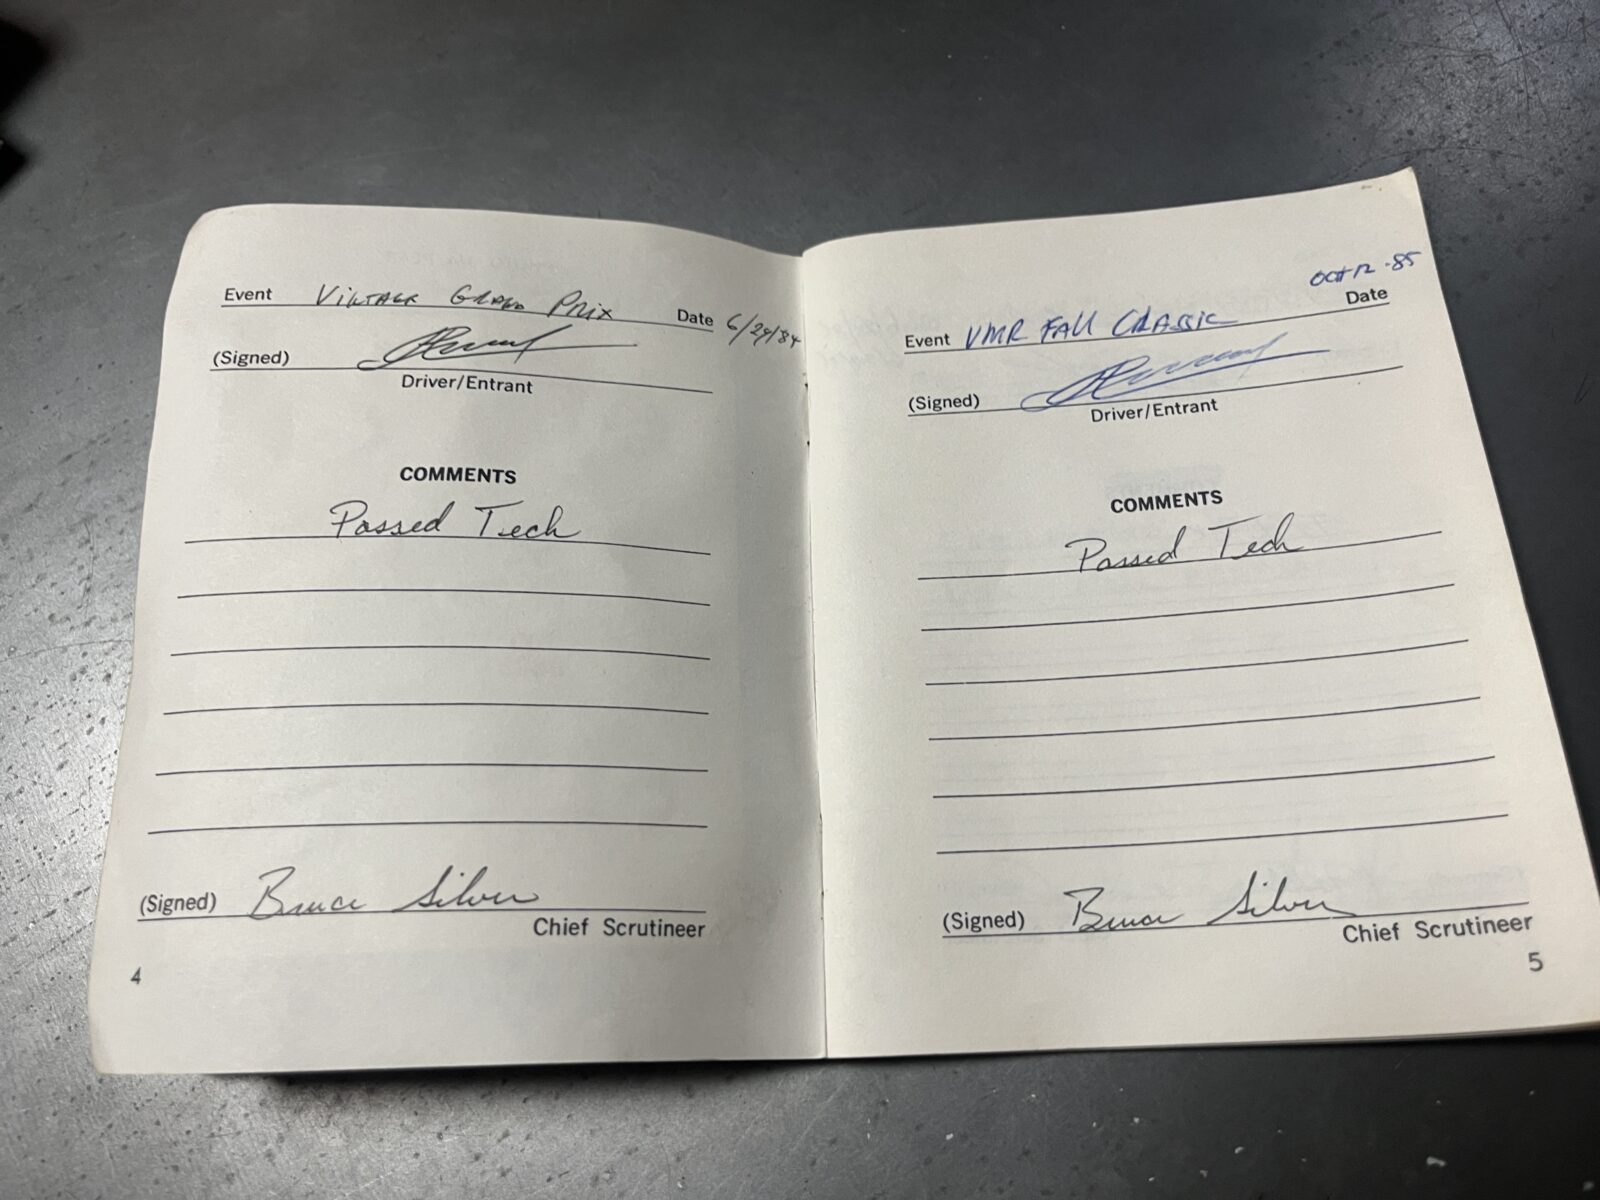 Event Vintage Grand Prix Date 6/29/84
(Signed)
Driver/Entrant
COMMENTS
Passed Tech
(Signed) Bruce Silver
Chief Scrutineer
4
Oct 12 -85
Date
Event VMR FALL CLASSIC
(Signed)
Driver/Entrant
COMMENTS
Passed Tech
(Signed) Bruce Silver
Chief Scrutineer
5